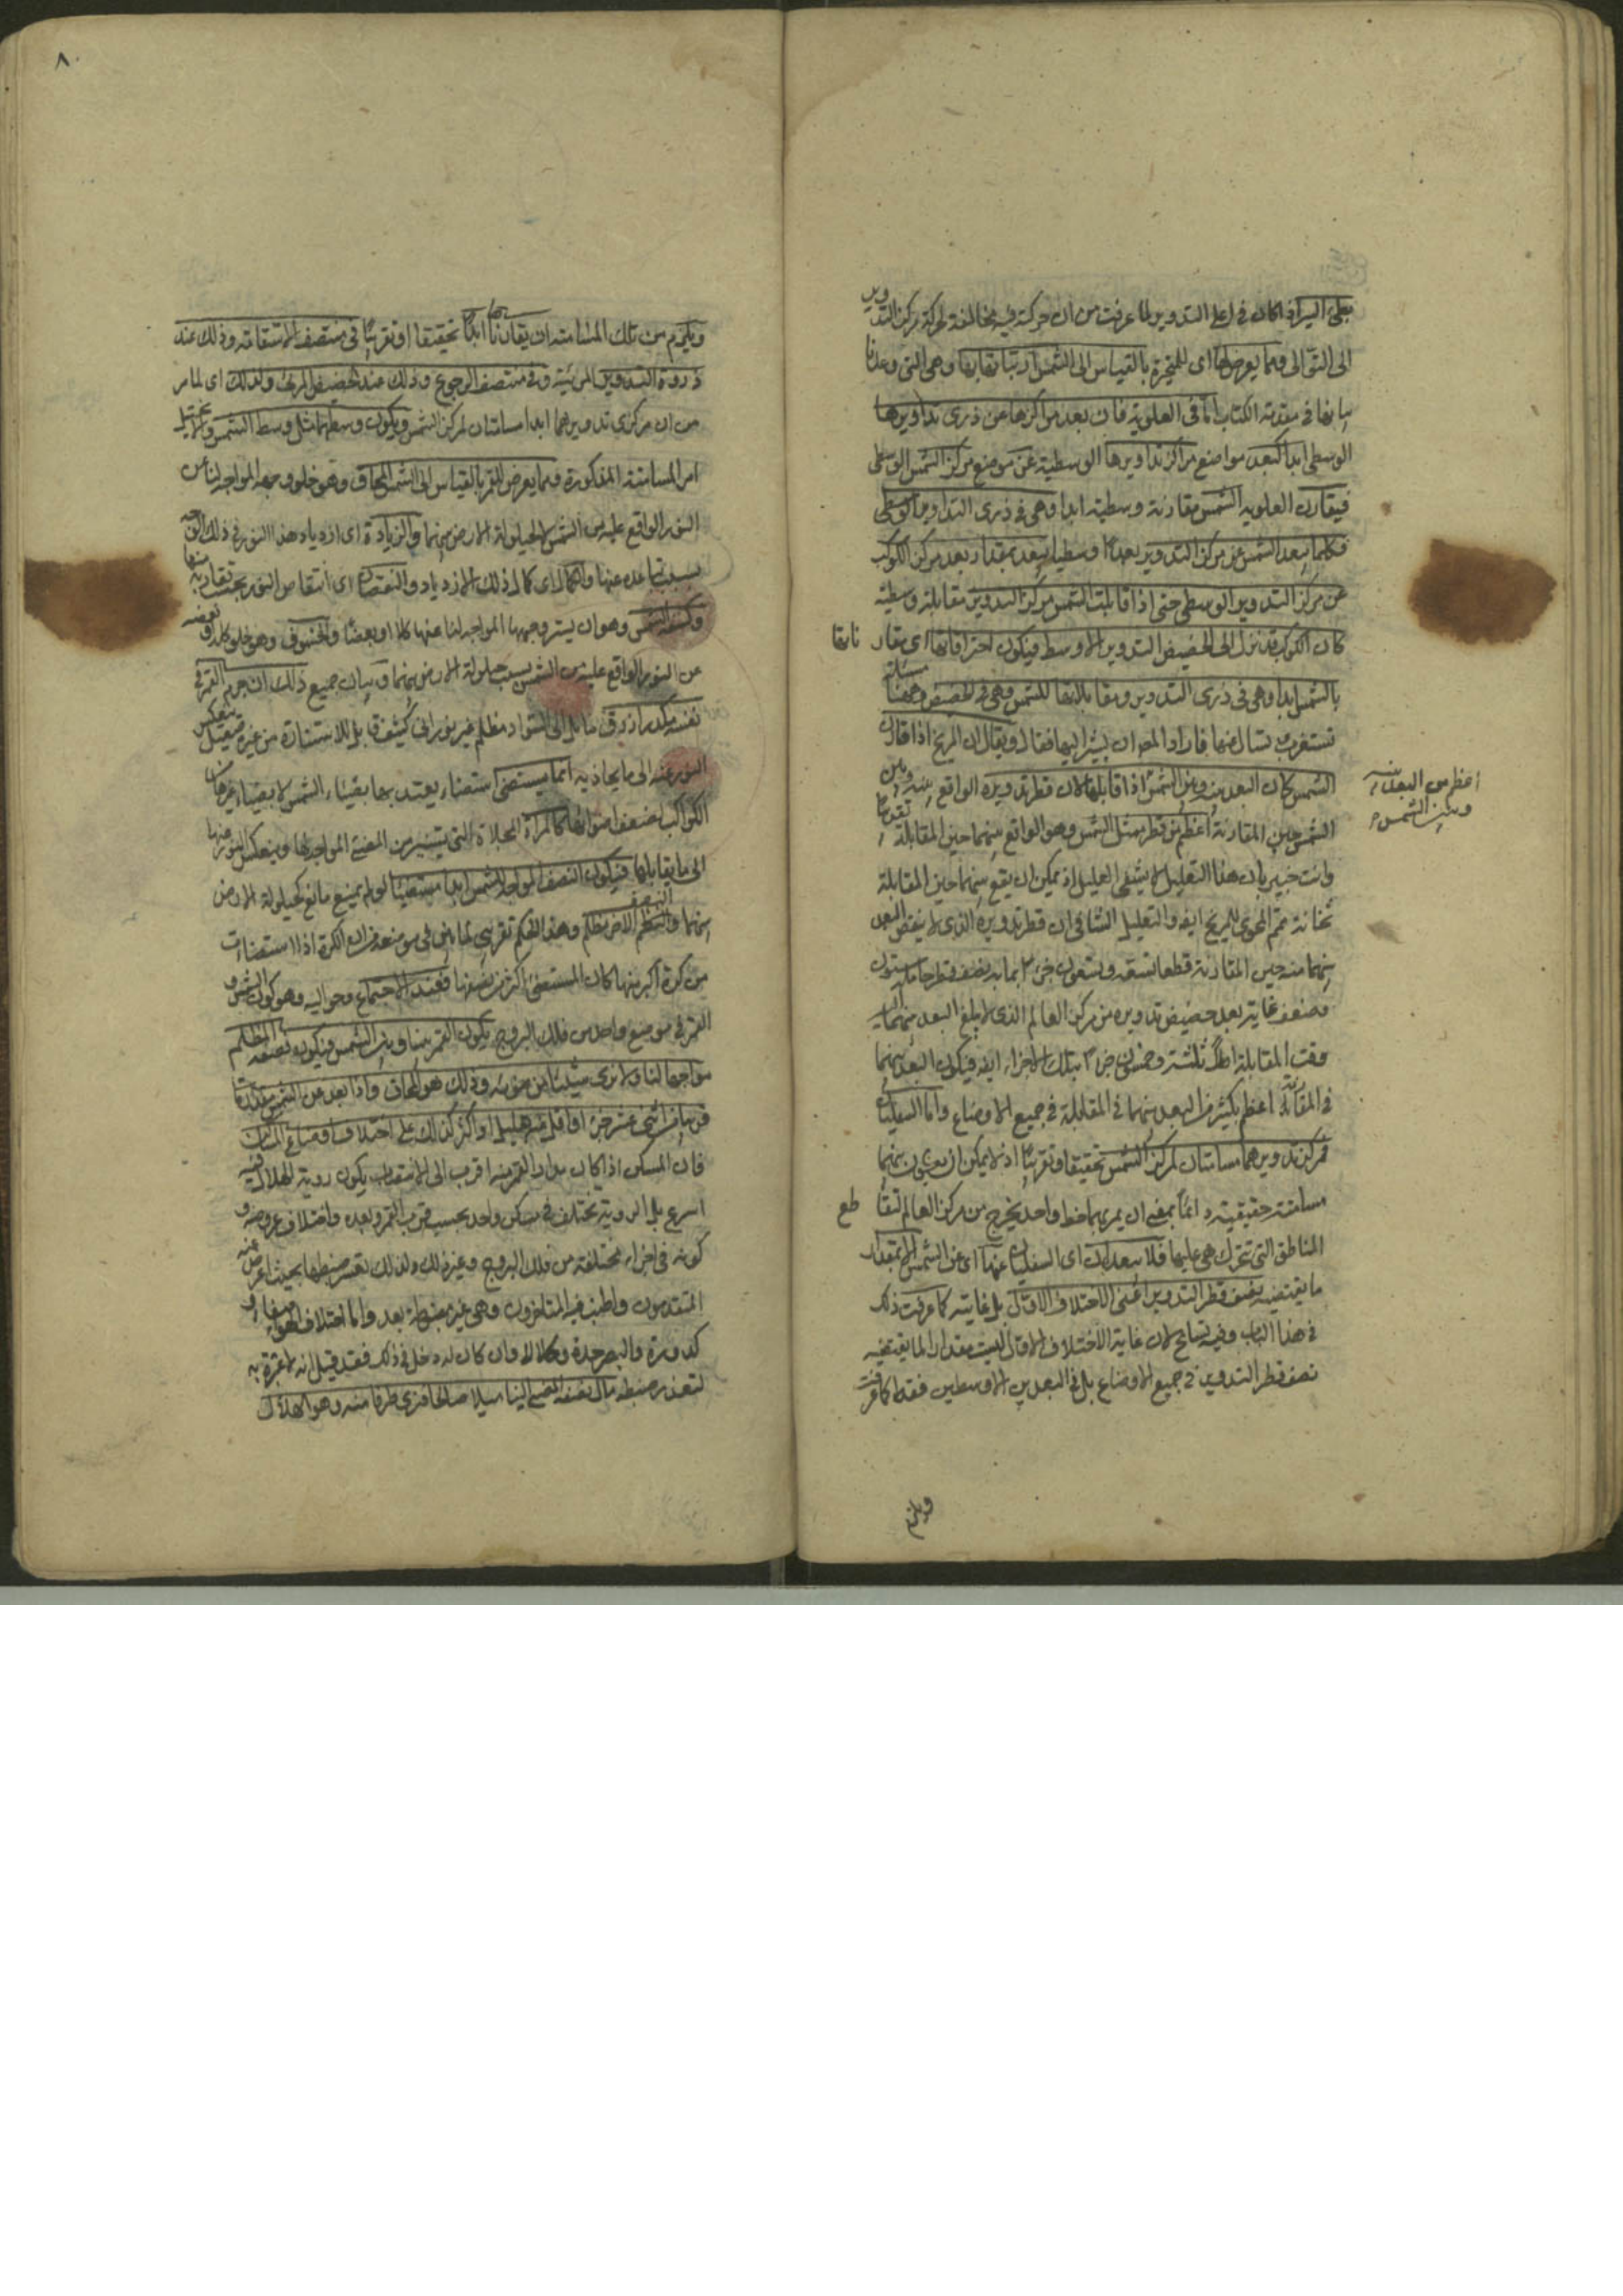 بطئ السير اذا كان فى اعلى التدوير لما عرفت من ان حركته فيه مخالفة لحركة مركز التدوير
الى التوالى ومما يعرض لها اى للمتحيرة بالقياس الى الشمس ارتباطاتها بها وهى التى وعدنا
بيانها فى مقدمة الكتاب اما فى العلوية فان بعد مراكزها عن ذرى تداويرها
الوسطى ابدا كبعد مواضع مراكز تداويرها الوسطية عن موضع مركز الشمس الوسطى
فيقارن العلوية الشمس مقارنة وسطية ابدا وهى فى ذرى التداوير الوسطى
فكلما يبعد الشمس عن مركز التدوير بعدا وسطيا يبعد بمقداره بعد مركز الكوكب
عن مركز التدوير الوسطى حتى اذا قابلت الشمس مركز التدوير مقابلة وسطية
كان الكوكب قد نزل الى الحضيض التدوير الاوسط فيكون احتراقاتها اى مقار ناتها
بالشمس ابدا وهى فى ذرى التدوير ومقابلاتها للشمس وهى فى الحضيض وههنا مسئلة
تستغرب تسأل عنها فاراد المص ان يشير اليها فقال ويقال ان المريخ اذا قارن
الشمس كان البعد بينه وبين الشمس اذا قابلها لان قطر تدويره الواقع بينه وبين
اعظم من البعد بينه
وبين الشمس
الشمس حين المقارنة اعظم من قطر ممثل الشمس وهو الواقع بينهما حين المقابلة
وانت خبير بان هذا التعليل لا يشفى العليل اذ يمكن ان يقع بينهما حين المقابلة
ثخانة متمم المحوى للمريخ ايضا والتعليل الشافى ان قطر تدويره الذى لا ينقص البعد
بينهما منه حين المقارنة قطعا تسعة وسبعون جزءا بما به نصف قطر حامله ستون
وضعف غاية بعد حضيض تدويره من مركز العالم الذى لا يبلغ البعد بينهما اليه
وقت المقابلة اصلا ثلثة وخمسون جزءا بتلك الاجزاء ايضا فيكون البعد بينهما
فى المقارنة اعظم بكثير من البعد بينهما فى المقابلة فى جميع الاوضاع واما السفليان
فمركز تدويرهما مسامتان لمركز الشمس تحقيقا او تقريبا اذ لا يمكن ان يكون بينهما
مسامتة حقيقية دائما بمعنى ان يمر بهما خط واحد يخرج من مركز العالم لتقا طع
المناطق التى تتحرك هى عليها فلا يبعدان اى السفليان عنها اى عن الشمس الا بمقدار
ما يقتضيه نصف قطر التدوير اعنى الاختلاف الاول بل غايته كما عرفت ذلك
فى هذا الباب وفيه تسامح لان غاية الاختلاف الاول ليست بمقدار لما يقتضيه
نصف قطر التدوير فى جميع الاوضاع بل فى البعدين الاوسطين فقط كما عرفت
ويلزم
٨٠
ويلزم من تلك المسامتة ان يقارناها ابدا تحقيقا او تقريبا فى منتصف الاستقامة وذلك عند
ذروة التدوير المرئية وفى منتصف الرجوع وذلك عند الحضيض المرئى ولذلك اى لما مر
من ان مركزى تدويرهما ابدا مسامتان لمركز الشمس ويكون وسطهما مثل وسط الشمس
امر المسامتة المذكورة ومما يعرض للقمر بالقياس الى الشمس المحاق وهو خلو وجهه المواجه لنا عن
النور الواقع عليه من الشمس لا لحيلولة الارض بينهما والزيادة اى ازدياد هذا النور فى ذلك الوجه
بسبب تباعده عنها والكمال اى كمال ذلك الازدياد والنقصان اى انتقاص النور بحسب تقاربه منها
وكسفه الشمس وهو ان يستر وجهها المواجه لنا عنها كلا او بعضا والخسوف وهو خلو كله او بعضه
عن النور الواقع عليه من الشمس بسبب حيلولة الارض بينهما وبيان جميع ذلك ان جرم القمر فى
نفسه مكدر ازرق مائل الى السواد مظلم غير نورانى كثيف قابل للاستنارة من غيره صقيل ينعكس
النور عنه الى ما يحاذيه انما يستضئ استضاءة يعتد بها بضياء الشمس لا بضياء غيرها من
الكواكب لضعف اضوائها كالمرآة المجلاة التى تستنير من المضئ المواجه لها وينعكس النور عنها
الى ما يقابلها فيكون النصف المواجه للشمس ابدا مستضيئا لو لم يمنع مانع كحيلولة الارض
بينهما والنصف الاخر مظلم وهذا الحكم تقريبى لما بين فى موضعه من ان الكرة اذا استضاءت
من كرة اكبر منها كان المستضئ اكثر من نصفها فعند الاجتماع وحواليه وهو كون الشمس و
القمر فى موضع واحد من فلك البروج يكون القمر بيننا وبين الشمس فيكون نصفه المظلم
مواجها لنا ولا نرى شيئا من ضوئه وذلك هو المحاق واذا بعد عن الشمس مقدارا
قريبا من اثنى عشر جزءا او اقل منه بقليل او اكثر كذلك على اختلاف اوضاع المساكن
فان المسكن اذا كان مدار القمر فيه اقرب الى الانتصاب يكون رؤية الهلال فيه
اسرع بل الرؤية تختلف فى مسكن واحد بحسب قرب القمر وبعده واختلاف عروضه و
كونه فى اجزاء مختلفة من فلك البروج وغير ذلك ولذلك تعسر ضبطها بحيث اعرض عنه
المتقدمون واطنب فيه المتاخرون وهى غير مضبوطة بعد واما اختلاف الهواء صفاء و
كدورة والبصر حدة وكلالا وان كان له دخل فى ذلك فقد قيل انه لا عبرة به
لتعذر ضبطه مال نصفه المضئ الينا ميلا صالحا فنرى طرفا منه وهو الهلال